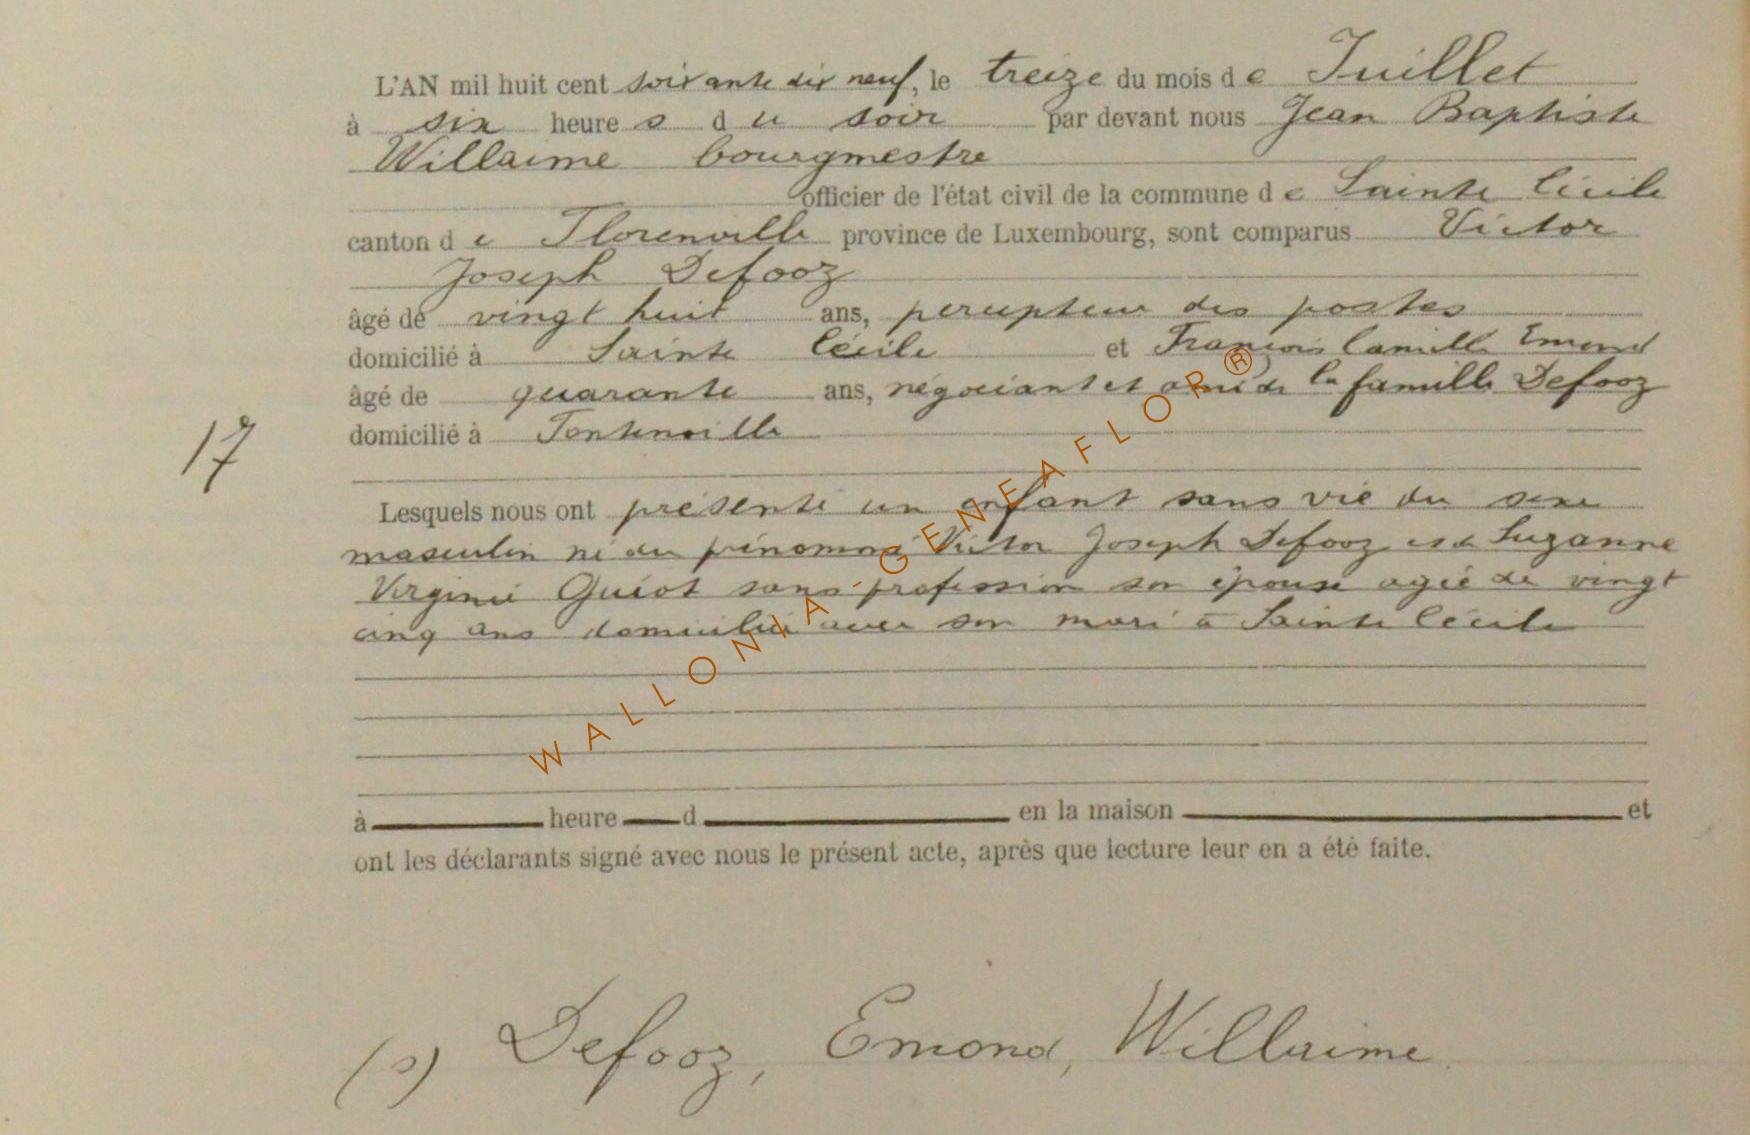 L'AN mil huit cent soixante dix neuf, le treize du mois de Juillet
à six heures du soir par devant nous Jean Baptiste
Willaime bourgmestre
officier de l'état civil de la commune de Sainte Cécile
canton de Florenville province de Luxembourg, sont comparus Victor
Joseph Defooz
âgé de vingt huit ans, percepteur des postes
domicilié à Sainte Cécile et François Camille Emond
âgé de quarante ans, négociant et ami de la famille Defooz
domicilié à Fontenoille
17
Lesquels nous ont présenté un enfant sans vie du sexe
masculin né du prénommé Victor Joseph Defooz et de Suzanne
Virginie Guiot sans profession son épouse agée de vingt
cinq ans domiciliée avec son mari à Sainte Cécile
à heure d en la maison et
ont les déclarants signé avec nous le présent acte, après que lecture leur en a été faite.
(s) Defooz, Emond, Willaime.
WALLONIA-GENEAFLOR®